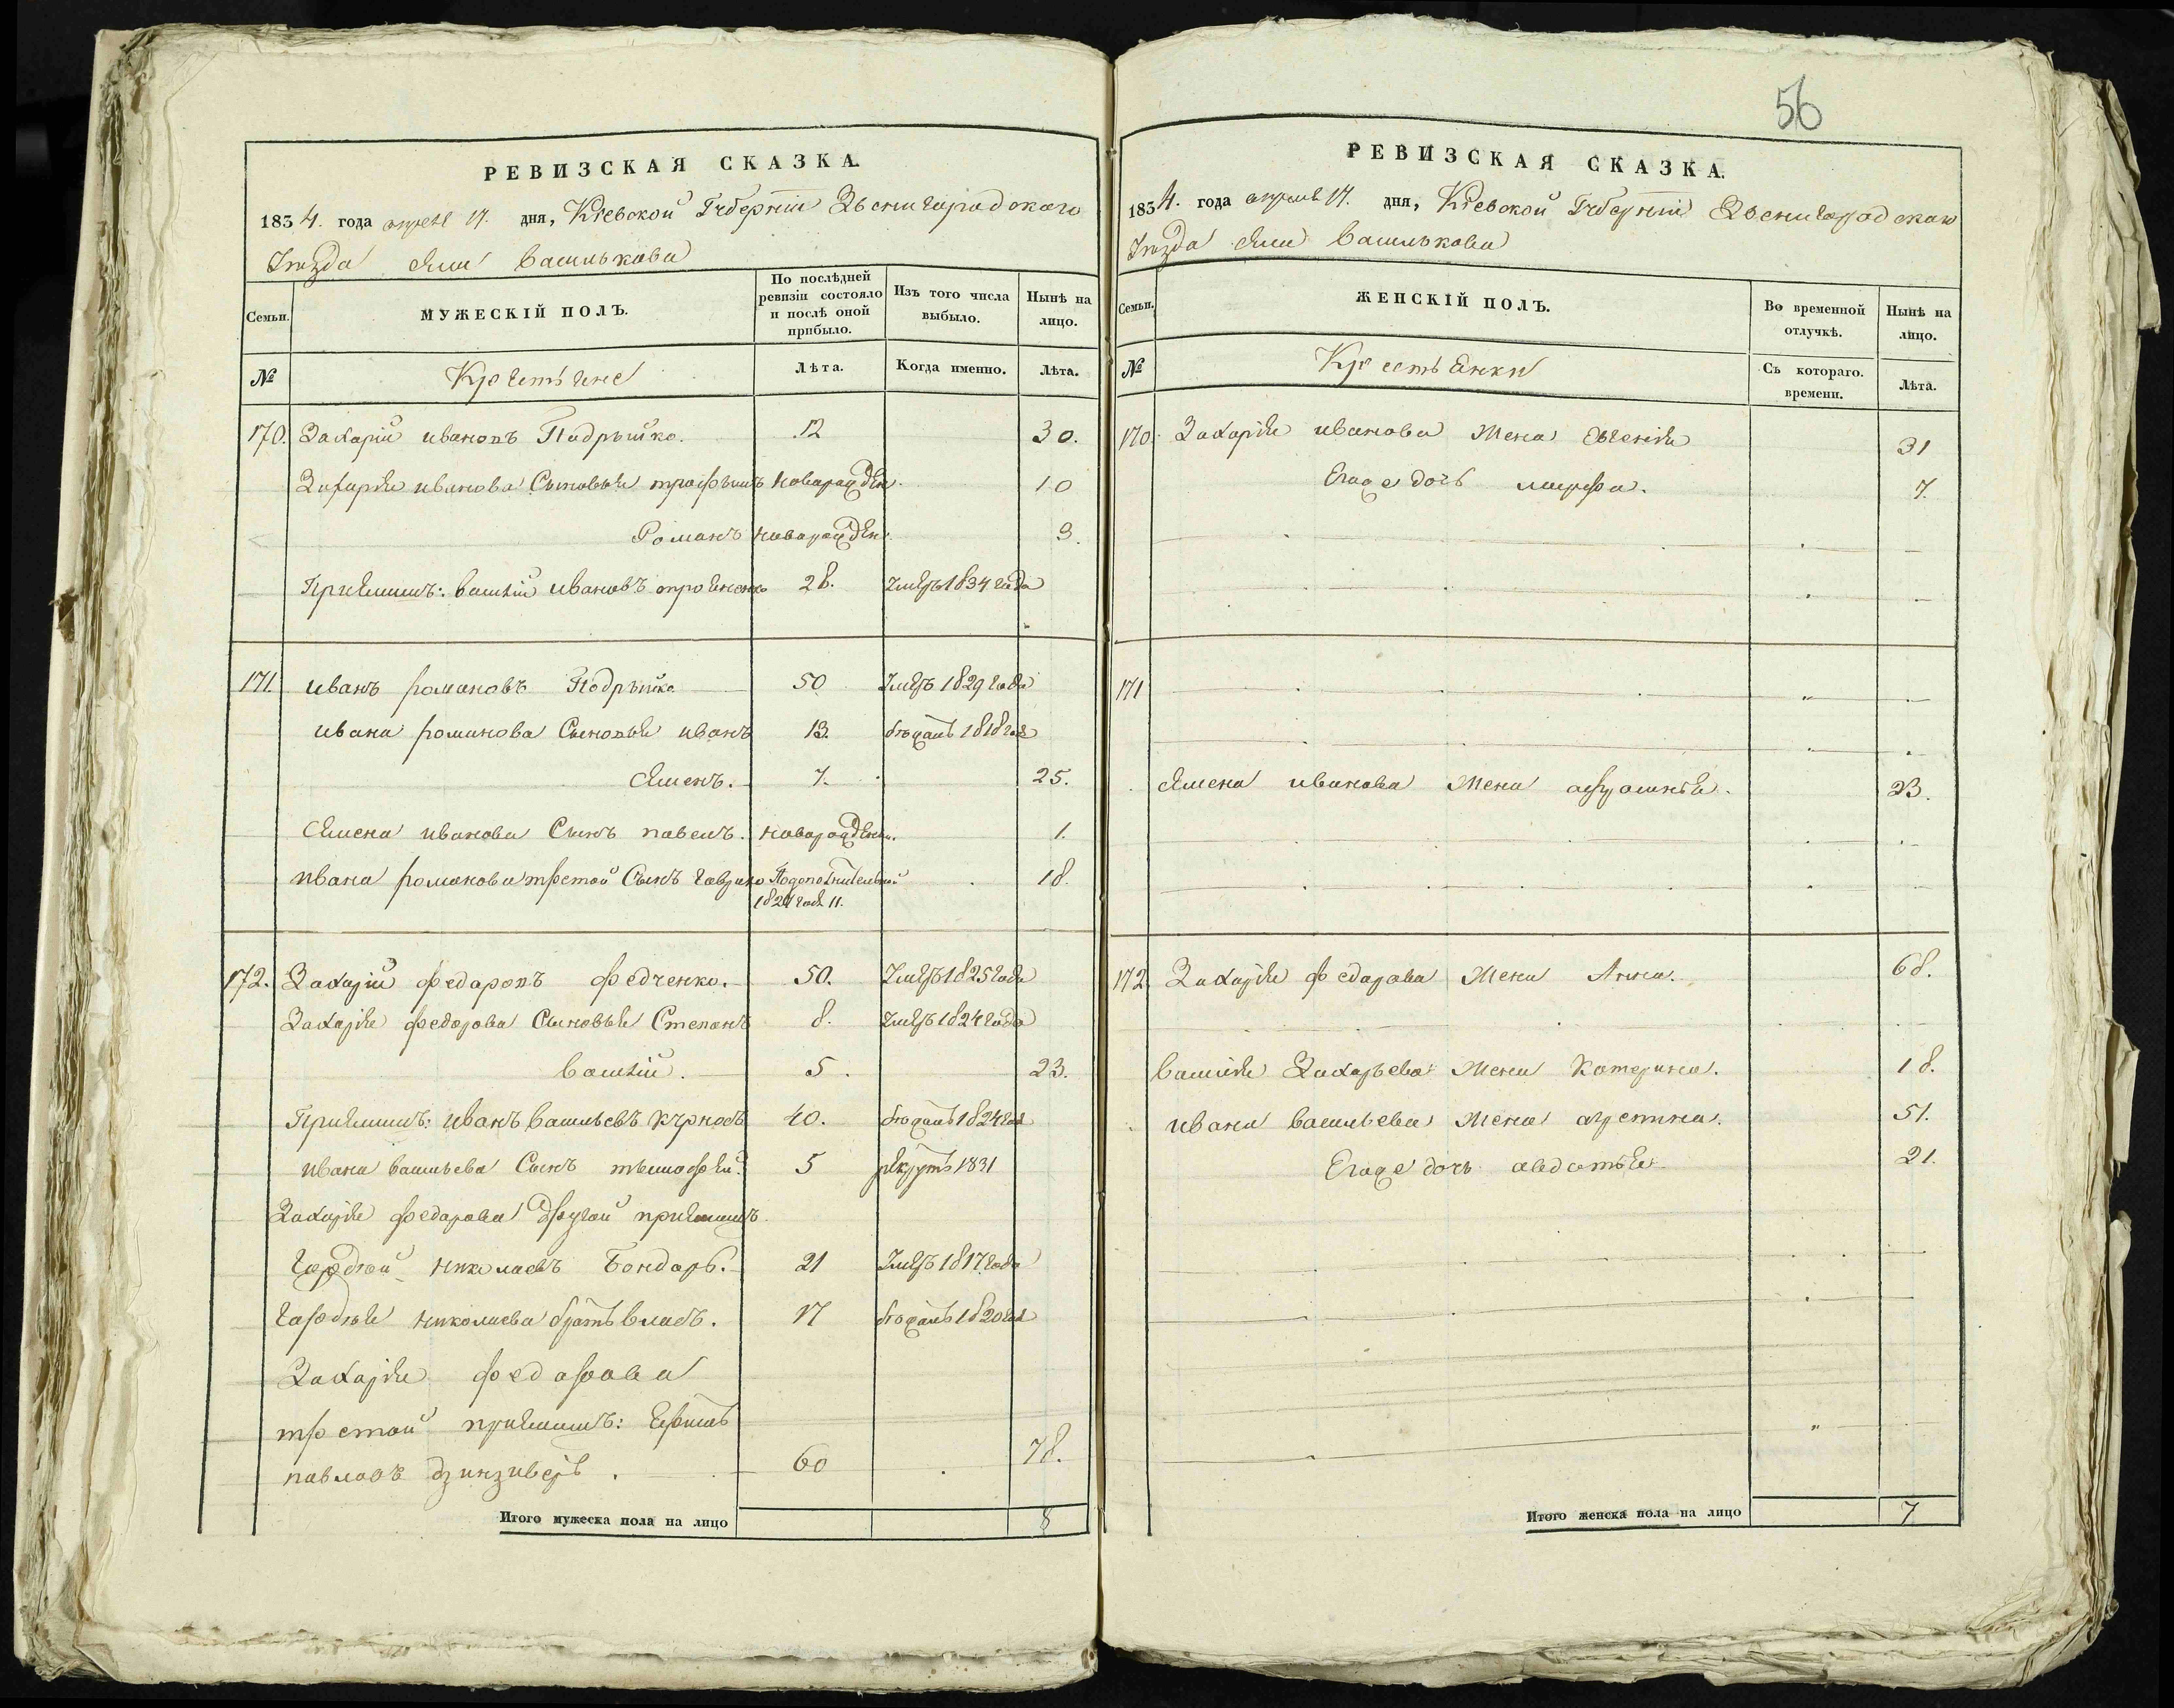 56
РЕВИЗСКАЯ СКАЗКА.
1834. года апреля 17. дня, Кіевской Губерніи Звенигорадскаго
Уѣзда Села Василькова
Семьи.
МУЖЕСКІЙ ПОЛЪ.
По послѣдней ревизіи состояло и послѣ оной прибыло.
Изъ того числа выбыло.
Нынѣ на лицо.
№
Крестьяне
Лѣта.
Когда именно.
Лѣта.
170. Захарій ивановъ 12 30.
Захарія иванова Сыновья трофымъ новорожден. 10
Романъ новорожден. 3.
Приемышъ: васілій ивановъ 28. Умеръ 1834 года
171 иванъ романовъ 50 Умеръ 1829 года
ивана романова Сыновья иванъ 13. бѣжалъ 1818 года
Семенъ. 7. 25.
Семена иванова Сынъ павелъ. новорожден. 1.
ивана романова третой Сынъ гаврило 18.
1824 года 11.
172. Захарій федоровъ федченко. 50. Умеръ 1825 года
Захарія федорова Сыновья Степанъ 8. Умеръ 1824 года
васілій. 5. 23.
Приемышъ: иванъ васильевъ 40. бѣжалъ 1824 года
ивана васильева Сынъ тымофей. 5 рекрутъ 1831
Захарія федорова другой приемышъ
гордѣй николаевъ Бондарь. 21 Умеръ 1817 года
гордѣя николаева братъ власъ. 17 бѣжалъ 1820 года
Захарія федорова
третой приемышъ: Ефимъ
павловъ дзинзиверъ. 60 78.
Итого мужеска пола на лицо 8
РЕВИЗСКАЯ СКАЗКА.
1834. года апреля 17. дня, Кіевской Губерніи Звенигорадскаго
Уѣзда Села Василькова
Семьи.
ЖЕНСКІЙ ПОЛЪ.
Во временной отлучкѣ.
Нынѣ на лицо.
№
Крестьянки
Съ котораго. времени.
Лѣта.
170. Захарія иванова Жена Евгенія 31
Егоже дочь марфа. 7.
171
Семена иванова Жена 23.
172. Захарія федорова Жена Анна. 68.
васілія Захарьева Жена Катерина. 18.
ивана васильева Жена 51.
Егоже дочь авдотья 21.
Итого женска пола на лицо 7